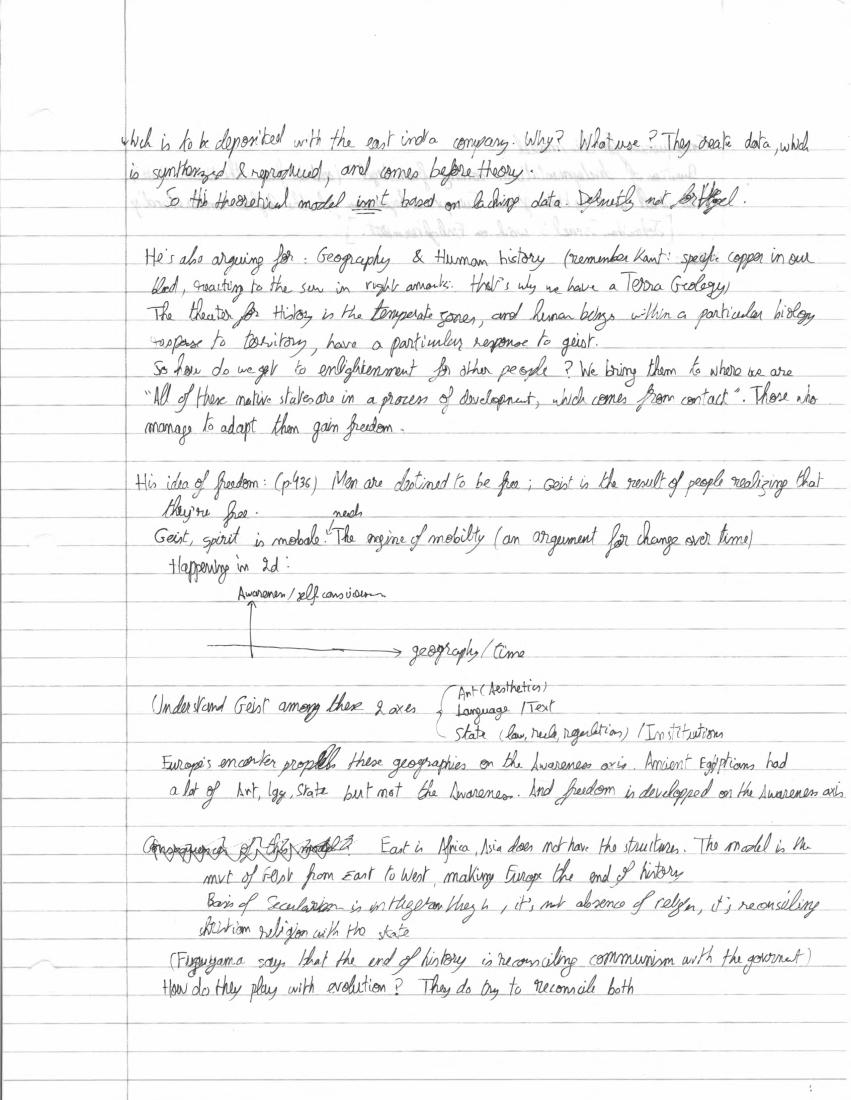 which is to be deposited with the east india company. Why? What use? They create data, which
is synthesized & reproduced, and comes before theory.
So this theoretical model isn't based on lacking data. Definetly not for Hegel.
He's also arguing for: Geography & Human history (remember Kant: specific copper in our
blood, reacting to the sun in right amounts. that's why we have a Terra Geology)
The theater for History is the temperate zones, and human beings within a particular biology
response to territory, have a particular response to geist.
So how do we get to enlightenment for other people? We bring them to where we are
"All of these native states are in a process of development, which comes from contact". Those who
manage to adapt them gain freedom.
His idea of freedom: (p436) Men are destined to be free; Geist is the result of people realizing that
they're free.
needs
Geist, spirit is mobale. The engine of mobility (an argument for change over time)
Happening in 2d:
Awareness/self consciousness
geography/time
Understand Geist among these 2 axes
Art (Aesthetics)
Language /Text
State (law, rule, regulation) /Institutions
Europe's encounter propells these geographies on the Awareness axis. Ancient Egyptians had
a lot of Art, lgg, State but not the Awareness. And freedom is developped on the Awareness axis.
Consequences of this model? East is Africa, Asia does not have the structures. The model is the
mvt of Geist from East to West, making Europe the end of history
Basis of Secularism is , it's not absence of religion, it's reconsiling
christian religion with the state
(Fuguyama says that the end of history is reconsciling communism with the governmt)
How do they play with evolution? They do try to reconcile both